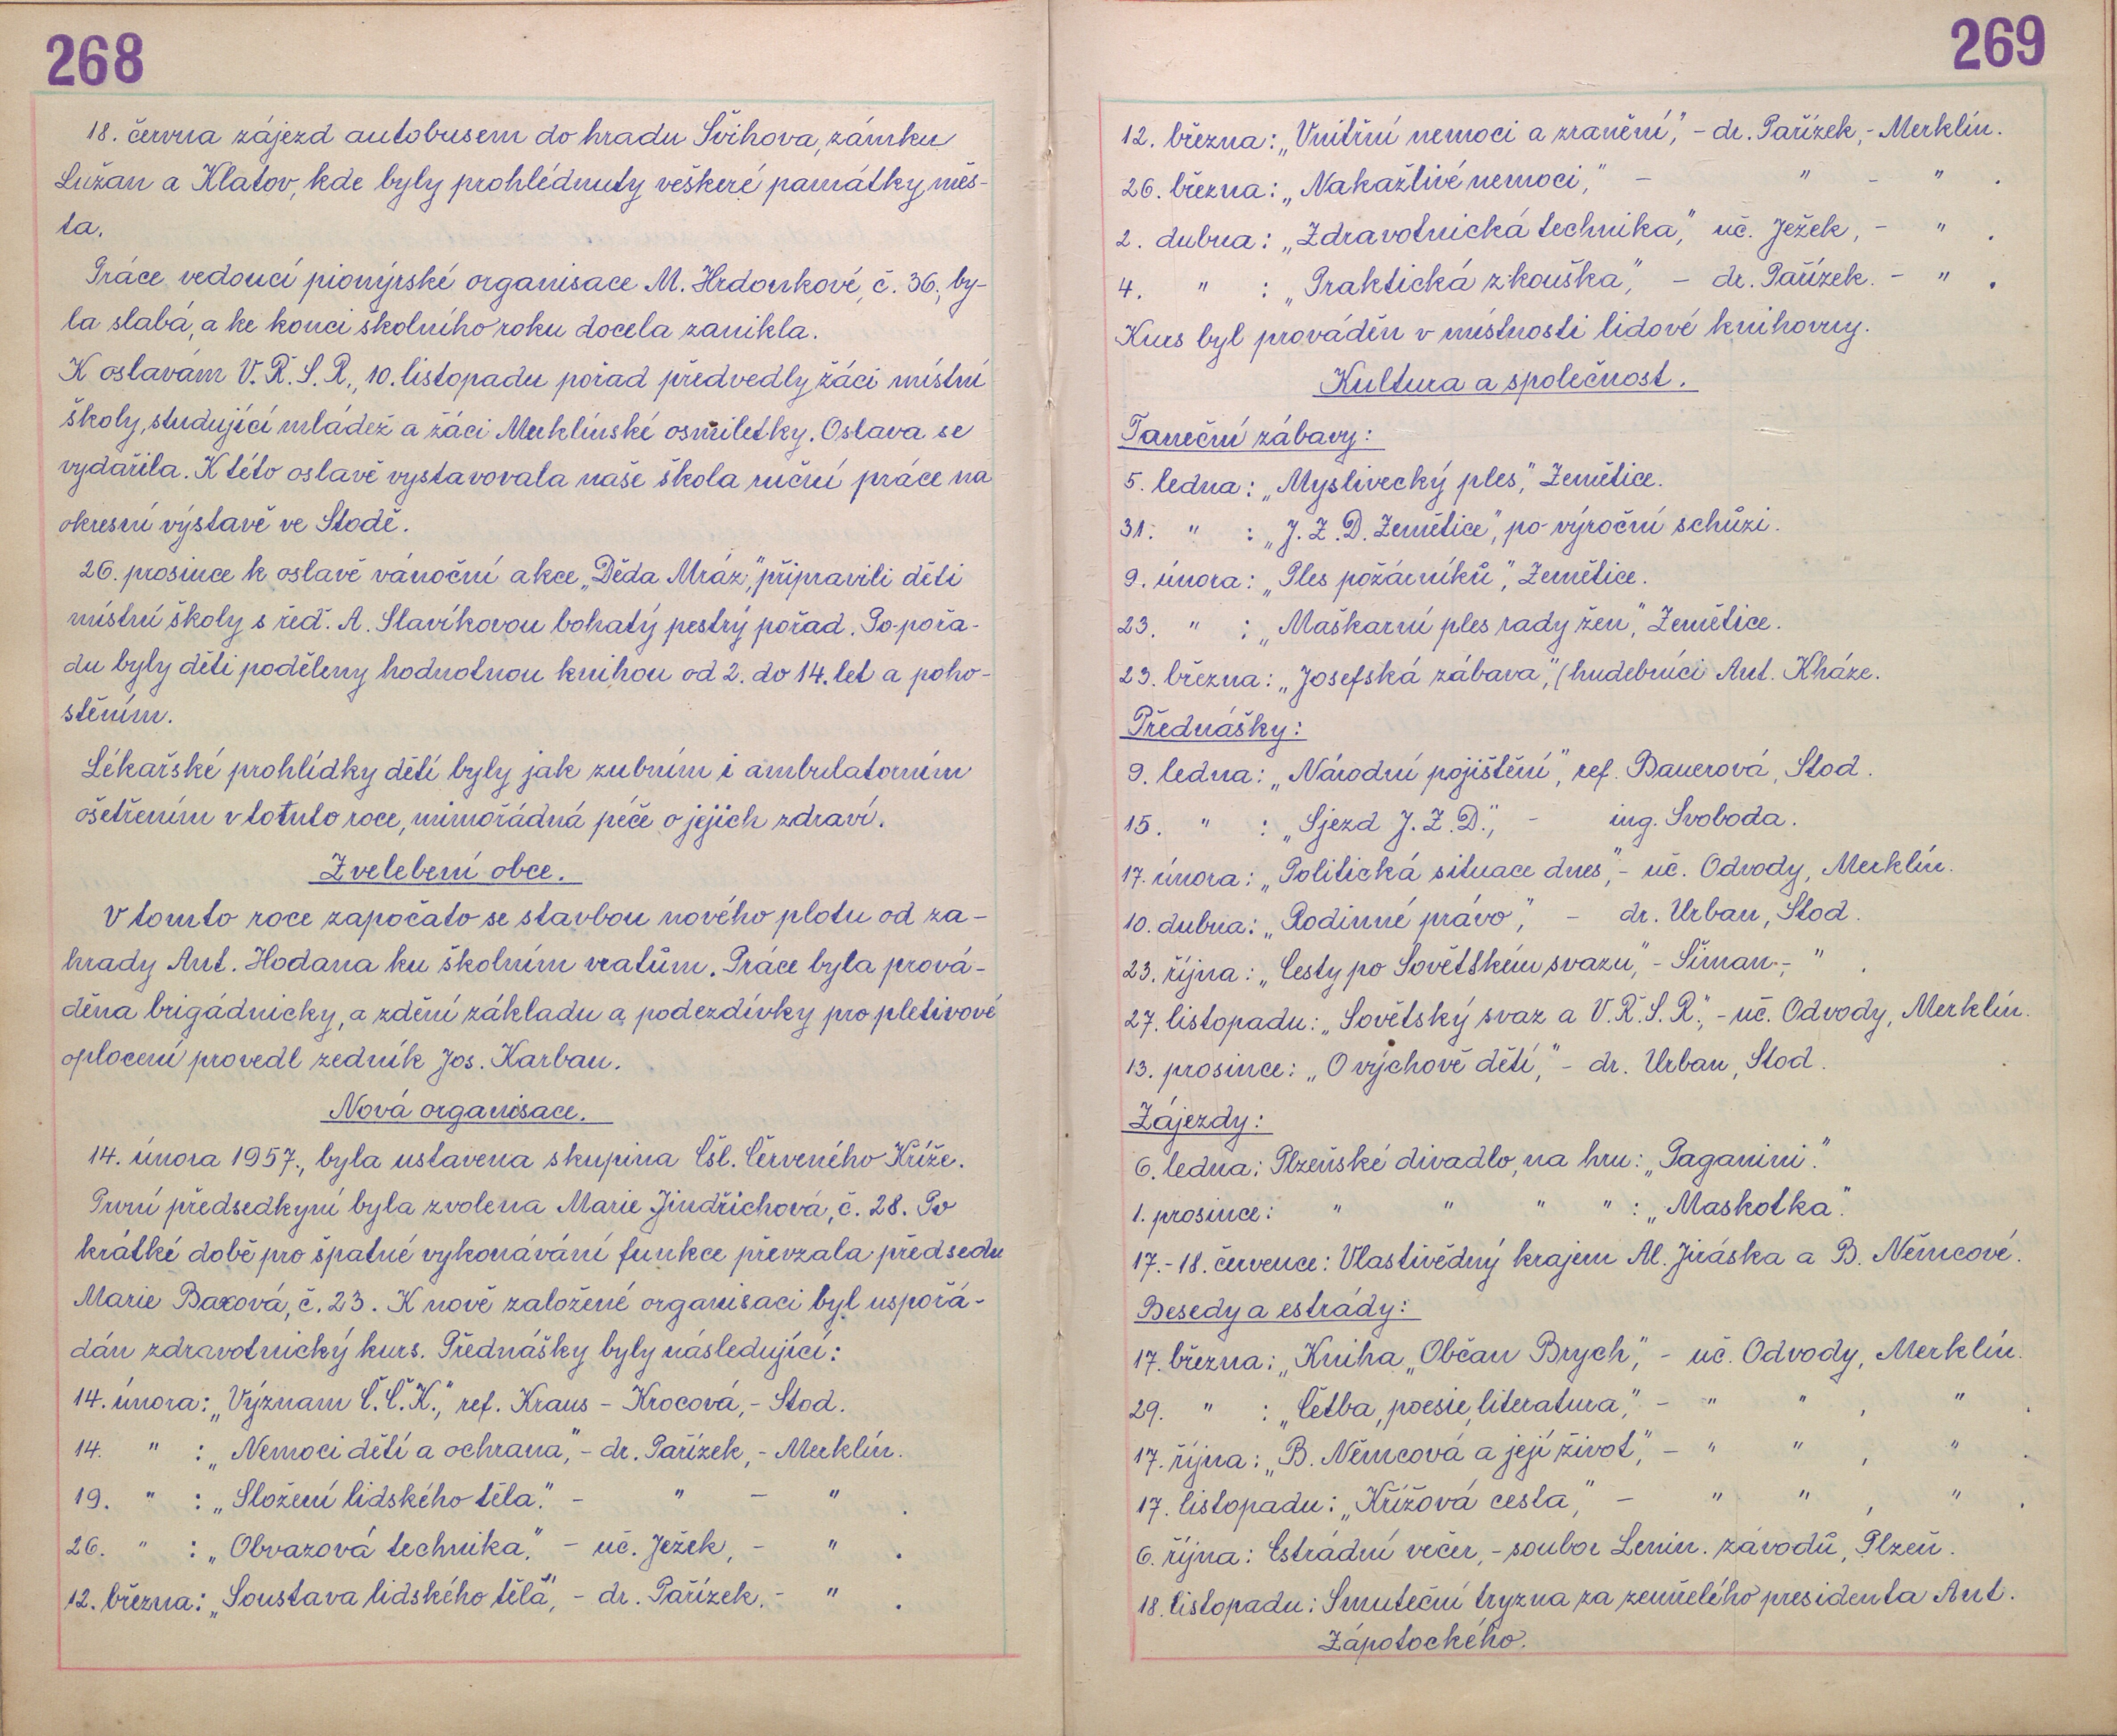 268
18. června zájezd autobusem do hradu Švihova, zámku
Lužan a Klatov, kde byly prohlédnuty veškeré památky měs-
ta.
Práce vedoucí pionýrské organisace M. Hrdonkové, č. 36, by-
la slabá, a ke konci školního roku docela zanikla.
K oslavám V.Ř.S.R., 10. listopadu pořad předvedly žáci místní
školy, studující mládež a žáci Merklínské osmiletky. Oslava se
vydařila. K této oslavě vystavovala naše škola ruční práce na
okresní výstavě ve Stodě.
26. prosince k oslavě vánoční akce „Děda Mráz," připravili děti
místní školy s řed. A. Slavíkovou bohatý pestrý pořad. Po-pořa-
du byly děti poděleny hodnotnou knihou od 2. do 14. let a poho-
stěním.
Lékařské prohlídky dětí byly jak zubním i ambulatorním
ošetřením v tomto roce, mimořádná péče o jejich zdraví.
Zvelebení obce.
V tomto roce započato se stavbou nového plotu od za-
hrady Ant. Hodana ku školním vratům. Práce byla prová-
děna brigádnicky, a zdění základu a podezdívky pro pletivové
oplocení provedl zedník Jos. Karban.
Nová organisace.
14. února 1957., byla ustavena skupina Čsl. Červeného Kříže.
První předsedkyní byla zvolena Marie Jindřichová, č. 28. Po
krátké době pro špatné vykonávání funkce převzala předsedu
Marie Baxová, č. 23. K nově založené organisaci byl uspořá-
dán zdravotnický kurs. Přednášky byly následující:
14. února: „Význam Č.Č.K.," ref. Kraus - Krocová, - Stod.
14. " : „Nemoci dětí a ochrana", - dr. Pařízek, - Merklín.
19. " : „Složení lidského těla." - " - " .
26. " : „Obvazová technika," - uč. Ježek, - " .
12. března: „Soustava lidského těla", - dr. Pařízek. - " .
269
12. března: „Vnitřní nemoci a zranění," - dr. Pařízek, - Merklín.
26. března: „Nakažlivé nemoci," - " - " .
2. dubna: „Zdravotnická technika," uč. Ježek, - " .
4. " : „Praktická zkouška," - dr. Pařízek. - " .
Kurs byl prováděn v místnosti lidové knihovny.
Kultura a společnost.
Taneční zábavy:
5. ledna: „Myslivecký ples," Zemětice.
31. " : „J.Z.D. Zemětice", po výroční schůzi.
9. února: „Ples požárníků", Zemětice.
23. " : „Maškarní ples rady žen", Zemětice.
23. března: „Josefská zábava", (hudebníci Ant. Kháze.
Přednášky:
9. ledna: „Národní pojištění", ref. Bauerová, Stod.
15. " : „Sjezd J.Z.D.", - ing. Svoboda.
17. února: „Politická situace dnes", - uč. Odvody, Merklín.
10. dubna: „Rodinné právo", - dr. Urban, Stod.
23. října: „Cesty po Sovětském svazu," - Šiman -, " .
27. listopadu: „Sovětský svaz a V.Ř.S.R.", - uč. Odvody, Merklín.
13. prosince: „O výchově dětí," - dr. Urban, Stod.
Zájezdy:
6. ledna: Plzeňské divadlo, na hru: „Paganini."
1. prosince: " " " " : „Maskotka."
17.-18. července: Vlastivědný krajem Al. Jiráska a B. Němcové.
Besedy a estrády:
17. března: „Kniha „Občan Brych", - uč. Odvody, Merklín.
29. " : „Četba, poesie, literatura," - " " , " .
17. října: „B. Němcová a její život," - " " , " .
17. listopadu: „Křížová cesta," - " " , " .
6. října: Estrádní večer, - soubor Lenin. závodů, Plzeň.
18. listopadu: Smuteční tryzna za zemřelého presidenta Ant.
Zápotockého.